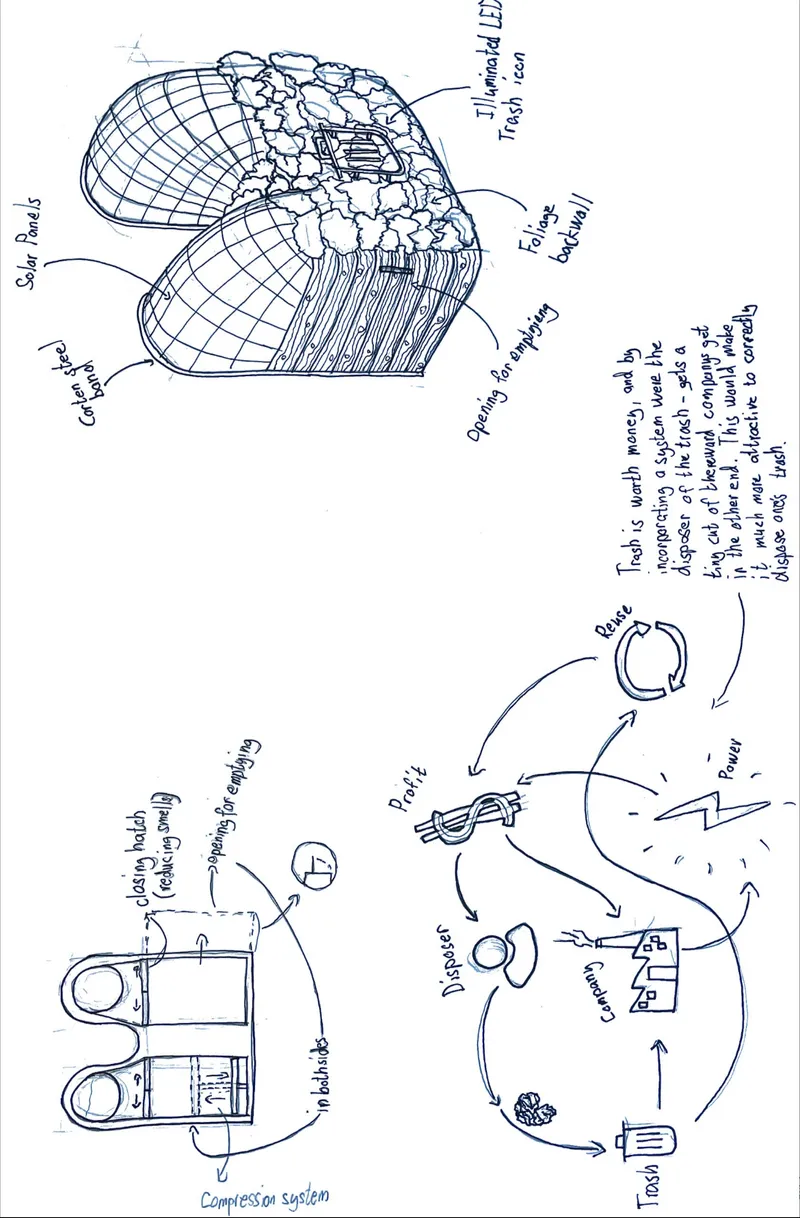 Solar Panels
Corten steel
band
Illuminated LED
Trash icon
Foliage
backwall
Opening for emptyieng
closing hatch
(reducing smell)
opening for emptying
in both sides
Compression system
Trash is worth money, and by
incorporating a system were the
disposer of the trash - gets a
tiny cut of thereward companys get
in the other end. This would make
it much more attractive to correctly
dispose one's trash.
Reuse
Profit
Power
Disposer
Company
Trash